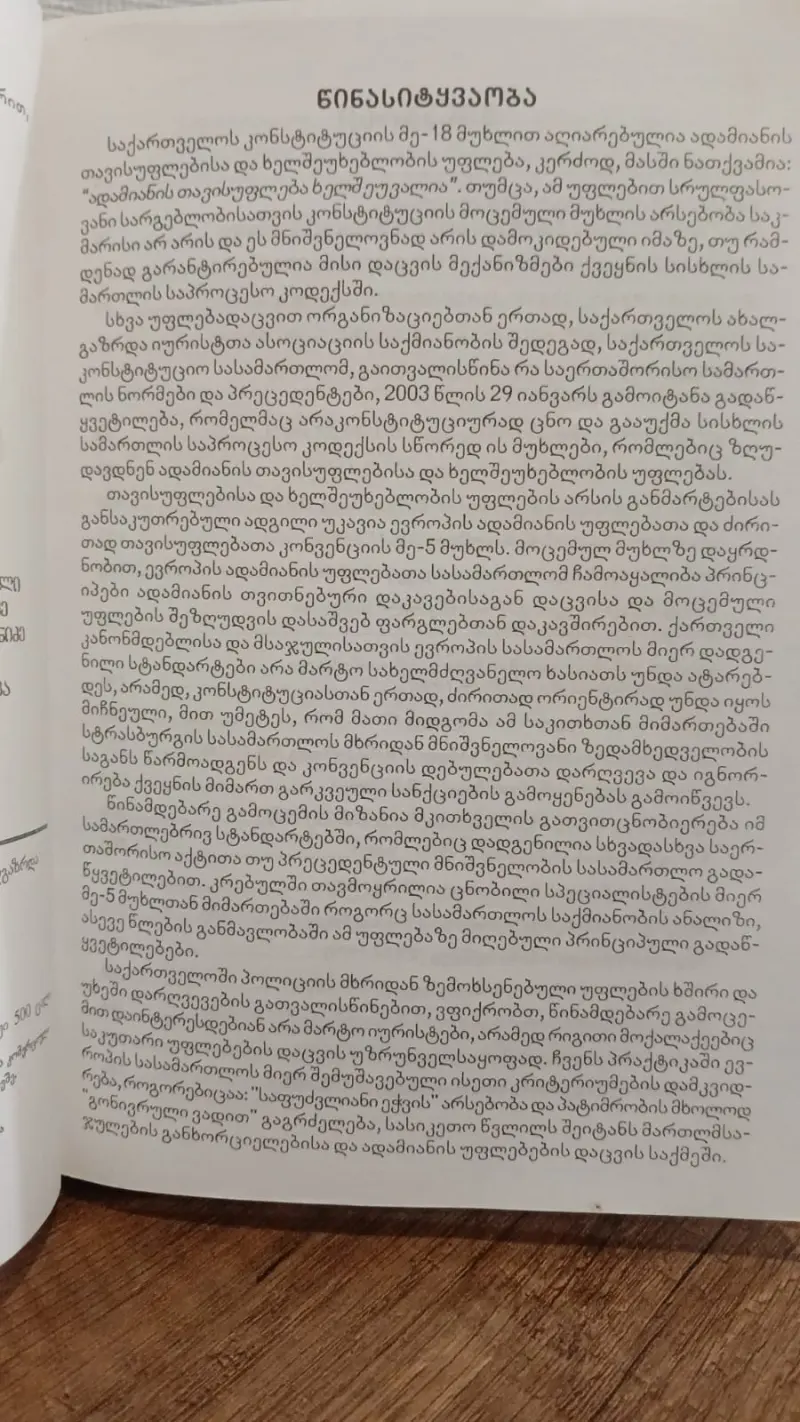 წინასიტყვაობა
საქართველოს კონსტიტუციის მე-18 მუხლით აღიარებულია ადამიანის
თავისუფლებისა და ხელშეუხებლობის უფლება, კერძოდ, მასში ნათქვამია:
"ადამიანის თავისუფლება ხელშეუვალია". თუმცა, ამ უფლებით სრულფასო-
ვანი სარგებლობისათვის კონსტიტუციის მოცემული მუხლის არსებობა საკ-
მარისი არ არის და ეს მნიშვნელოვნად არის დამოკიდებული იმაზე, თუ რამ-
დენად გარანტირებულია მისი დაცვის მექანიზმები ქვეყნის სისხლის სა-
მართლის საპროცესო კოდექსში.
სხვა უფლებადაცვით ორგანიზაციებთან ერთად, საქართველოს ახალ-
გაზრდა იურისტთა ასოციაციის საქმიანობის შედეგად, საქართველოს სა-
კონსტიტუციო სასამართლომ, გაითვალისწინა რა საერთაშორისო სამართ-
ლის ნორმები და პრეცედენტები, 2003 წლის 29 იანვარს გამოიტანა გადაწ-
ყვეტილება, რომელმაც არაკონსტიტუციურად ცნო და გააუქმა სისხლის
სამართლის საპროცესო კოდექსის სწორედ ის მუხლები, რომლებიც ზღუ-
დავდნენ ადამიანის თავისუფლებისა და ხელშეუხებლობის უფლებას.
თავისუფლებისა და ხელშეუხებლობის უფლების არსის განმარტებისას
განსაკუთრებული ადგილი უკავია ევროპის ადამიანის უფლებათა და ძირი-
თად თავისუფლებათა კონვენციის მე-5 მუხლს. მოცემულ მუხლზე დაყრდ-
ნობით, ევროპის ადამიანის უფლებათა სასამართლომ ჩამოაყალიბა პრინც-
იპები ადამიანის თვითნებური დაკავებისაგან დაცვისა და მოცემული
უფლების შეზღუდვის დასაშვებ ფარგლებთან დაკავშირებით. ქართველი
კანონმდებლისა და მსაჯულისათვის ევროპის სასამართლოს მიერ დადგე-
ნილი სტანდარტები არა მარტო სახელმძღვანელო ხასიათს უნდა ატარებ-
დეს, არამედ, კონსტიტუციასთან ერთად, ძირითად ორიენტირად უნდა იყოს
მიჩნეული, მით უმეტეს, რომ მათი მიდგომა ამ საკითხთან მიმართებაში
სტრასბურგის სასამართლოს მხრიდან მნიშვნელოვანი ზედამხედველობის
საგანს წარმოადგენს და კონვენციის დებულებათა დარღვევა და იგნორ-
ირება ქვეყნის მიმართ გარკვეული სანქციების გამოყენებას გამოიწვევს.
წინამდებარე გამოცემის მიზანია მკითხველის გათვითცნობიერება იმ
სამართლებრივ სტანდარტებში, რომლებიც დადგენილია სხვადასხვა საერ-
თაშორისო აქტითა თუ პრეცედენტული მნიშვნელობის სასამართლო გადა-
წყვეტილებით. კრებულში თავმოყრილია ცნობილი სპეციალისტების მიერ
მე-5 მუხლთან მიმართებაში როგორც სასამართლოს საქმიანობის ანალიზი,
ასევე წლების განმავლობაში ამ უფლებაზე მიღებული პრინციპული გადაწ-
ყვეტილებები.
საქართველოში პოლიციის მხრიდან ზემოხსენებული უფლების ხშირი და
უხეში დარღვევების გათვალისწინებით, ვფიქრობთ, წინამდებარე გამოცე-
მით დაინტერესდებიან არა მარტო იურისტები, არამედ რიგითი მოქალაქეებიც
საკუთარი უფლებების დაცვის უზრუნველსაყოფად. ჩვენს პრაქტიკაში ევ-
როპის სასამართლოს მიერ შემუშავებული ისეთი კრიტერიუმების დამკვიდ-
რება, როგორებიცაა: "საფუძვლიანი ეჭვის" არსებობა და პატიმრობის მხოლოდ
"გონივრული ვადით" გაგრძელება, სასიკეთო წვლილს შეიტანს მართლმსა-
ჯულების განხორციელებისა და ადამიანის უფლებების დაცვის საქმეში.